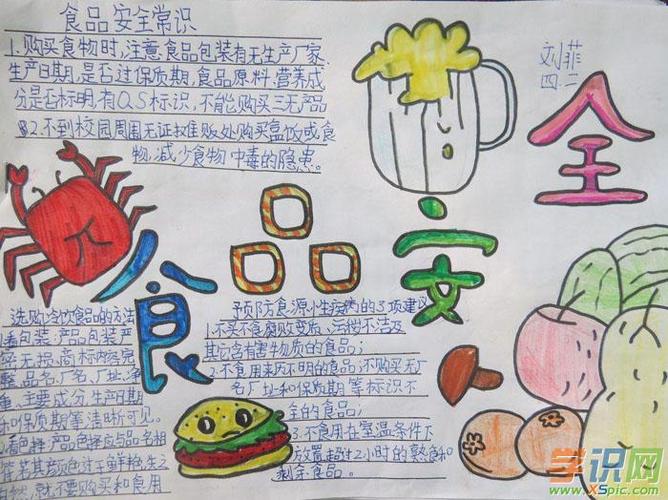 食品安全常识
1.购买食物时,注意食品包装有无生产厂家、
生产日期,是否过保质期,食品原料、营养成
分是否标明,有QS标识,不能购买三无产品
2.不到校园周围无证摊贩处购买盒饭或食
物,减少食物中毒的隐患。
刘菲
四二
食品安全
选购冷饮食品的方法
1.看包装:产品包装严
密无损,商标内容完
整,品名、厂名、厂址、净
重、主要成分、生产日期
和保质期等清晰可见。
看色择:产品色择应与品名相
符,若其颜色过于鲜
然,就不要购买和食用
预防食源小性疾病的3项建议
1.不买不食腐败变质、污秽不洁及
其它含有害物质的食品;
2.不食用来历不明的食品;不购买无厂
名厂址和保质期等标识不
全的食品;
3.不食用在室温条件下
放置超过2小时的熟食和
剩余食品。
学识网
www.xspic.com